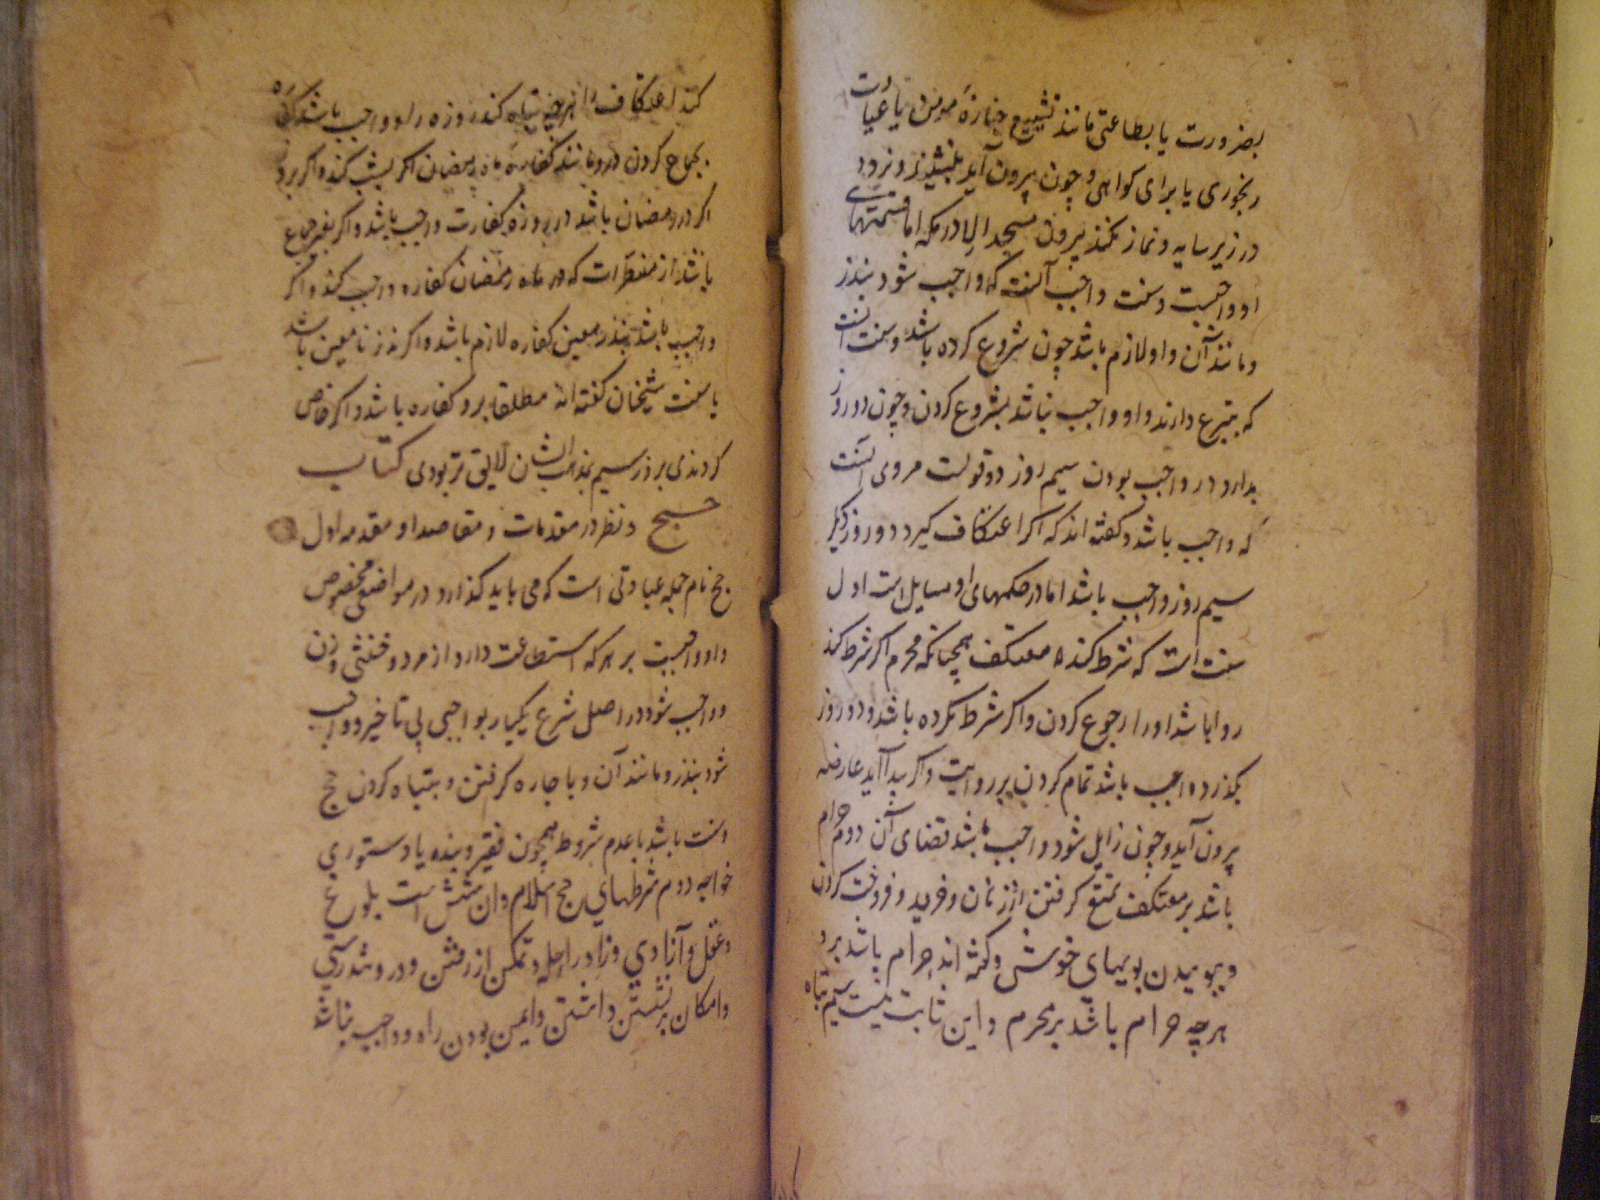 بضرورت یا بطاعتی مانند تشییع جنازهٔ مومن یا عیادت
رنجوری یا برای کواهی و چون بیرون آید ننشیند و نرود
در زیر سایه و نماز نکند بیرون مسجد الا در مکه اما قسمتهای
او واجبست و سنت واجب آنست که واجب شود بنذر
و مانند آن و او لازم باشد چون شروع کرده باشد و سنت آنست
که بتبرع دارند و او واجب نباشد بشروع کردن و چون دو روز
بدارد در واجب بودن سیم روز دو قولست مروی آنست
که واجب باشد و کفته اند که اکر اعتکاف کیرد دو روز دیکر
سیم روز واجب باشد اما در حکمهای او مسایل است اول
سنت است که شرط کند معتکف همچنانکه محرم اکر شرط کند
روا باشد او را رجوع کردن و اکر شرط نکرده باشد و دو روز
بکذرد واجب باشد تمام کردن بر روایت و اکر پیدا آید عارضه
بیرون آید و چون زایل شود واجب باشد قضای آن دوم حرام
باشد بر معتکف تمتع کرفتن از زنان و خرید و فروخت کردن
و بوییدن بویهای خوش و کفته اند حرام باشد برو
هر چه حرام باشد بر محرم و این ثابت نیست سیم تباه
کند اعتکاف را هر چه تباه کند روزه را و واجب باشد کفاره
بجماع کردن درو مانند کفاره ماه رمضان اکر بشب کند و اکر بروز
اکر در رمضان باشد در روزه کفارت واجب باشد و اکر بغیر جماع
باشد از مفطرات که در ماه رمضان کفاره واجب کند و اکر
واجب باشد بنذر معین کفاره لازم باشد و اکر نذر نا معین باشد
یا سنت شیخان کفته اند مطلقا برو کفاره باشد و اکر خاص
کردندی بروز سیم بمذهب ایشان لایق تر بودی کتاب
حج و نظر در مقدمات و مقاصد او مقدمه اول
حج نام جمله عبادتی است که می باید کذارد در مواضع مخصوص
و او واجبست بر هر که استطاعت دارد از مرد و خنثی و زن
و واجب شود در اصل شرع یکبار بواجبی بی تاخیر و واجب
شود بنذر و مانند آن و باجاره کرفتن و بتباه کردن حج
و سنت باشد با عدم شروط همچون فقیر و بنده با دستوری
خواجه دوم شرطهای حج اسلام و آن شش است بلوغ
و عقل و آزادی و زاد و راحله و تمکن از رفتن و درو تندرستی
و امکان بر نشستن و داشتن و ایمن بودن راه و واجب نباشد